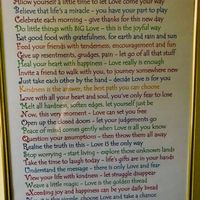 Allow yourself a little time to let Love come your way
Believe that life's a miracle - you have your part to play
Celebrate each morning - give thanks for this new day
Do little things with BIG Love - this is the joyful way
Eat good food with gratefulness, for earth and rain and sun
Feed your friends with tenderness, encouragement and fun
Give up resentments, grudges, pain - let go of all that stuff
Heal your heart with happiness - Love really is enough
Invite a friend to walk with you, to journey somewhere new
Just take each other by the hand - decide Love is for you
Kindness is the answer, the best path you can choose
Love with all your heart and soul, you've only fear to lose
Melt all hardness, soften edges, let yourself just be
Now, this very moment - Love can set you free
Open up the closed doors - let your judgements go
Peace of mind comes gently when Love is all you know
Question your assumptions - then throw them all away
Realise the truth is this - Love is the only way
Stop worrying - start living - explore those unknown lands
Take the time to laugh today - life's gifts are in your hands
Understand the message - there is only Love and fear
View your life with Love - let struggle disappear
Weave a little magic - Love is the golden thread
eXceeding joy and happiness can be your daily bread
simple, choose Love and take a chance